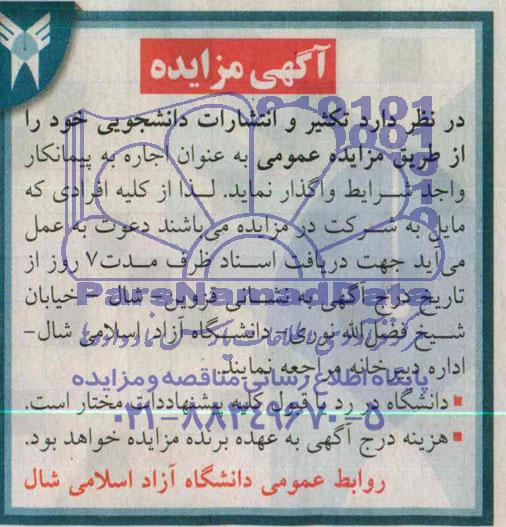 آگهی مزایده
در نظر دارد تکثیر و انتشارات دانشجویی خود را
از طریق مزایده عمومی به عنوان اجاره به پیمانکار
واجد شرایط واگذار نماید. لذا از کلیه افرادی که
مایل به شرکت در مزایده می‌باشند دعوت به عمل
می‌آید جهت دریافت اسناد ظرف مدت ۷ روز از
تاریخ درج آگهی به نشانی قزوین- شال - خیابان
شیخ فضل‌الله نوری- دانشگاه آزاد اسلامی شال-
اداره دبیرخانه مراجعه نمایند.
دانشگاه در رد یا قبول کلیه پیشنهادات مختار است.
هزینه درج آگهی به عهده برنده مزایده خواهد بود.
روابط عمومی دانشگاه آزاد اسلامی شال
ParsNamadData
پایگاه اطلاع رسانی مناقصه و مزایده
۰۲۱-۸۸۳۴۹۶۷۰-۵